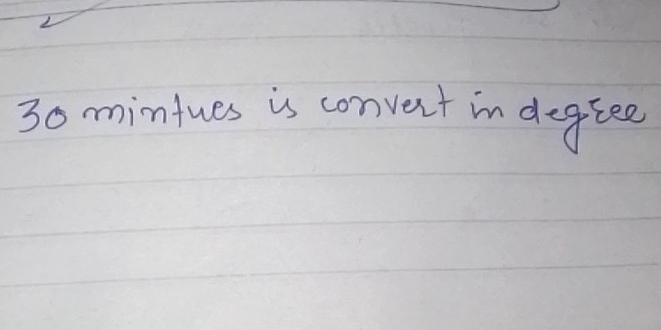 30 mintues is convert in degree